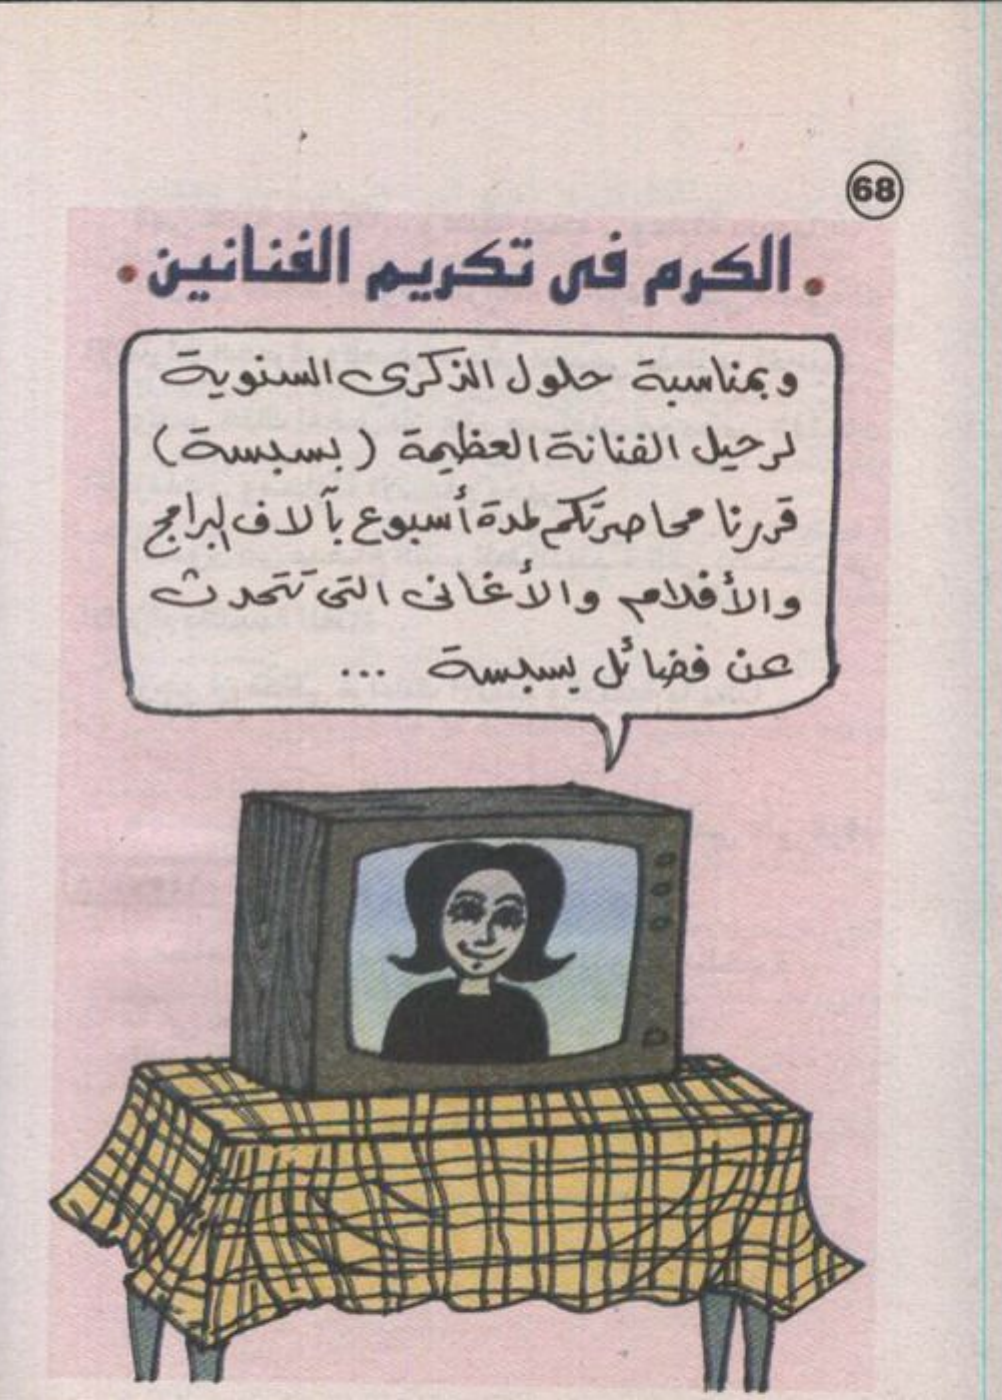 68
. الكرم فى تكريم الفنانين .
وبمناسبة حلول الذكرى السنوية
لرحيل الفنانة العظيمة (بسبسة)
قررنا محاصرتكم لمدة أسبوع بآلاف البرامج
والأفلام والأغانى التى تتحدث
عن فضائل بسبسة ...